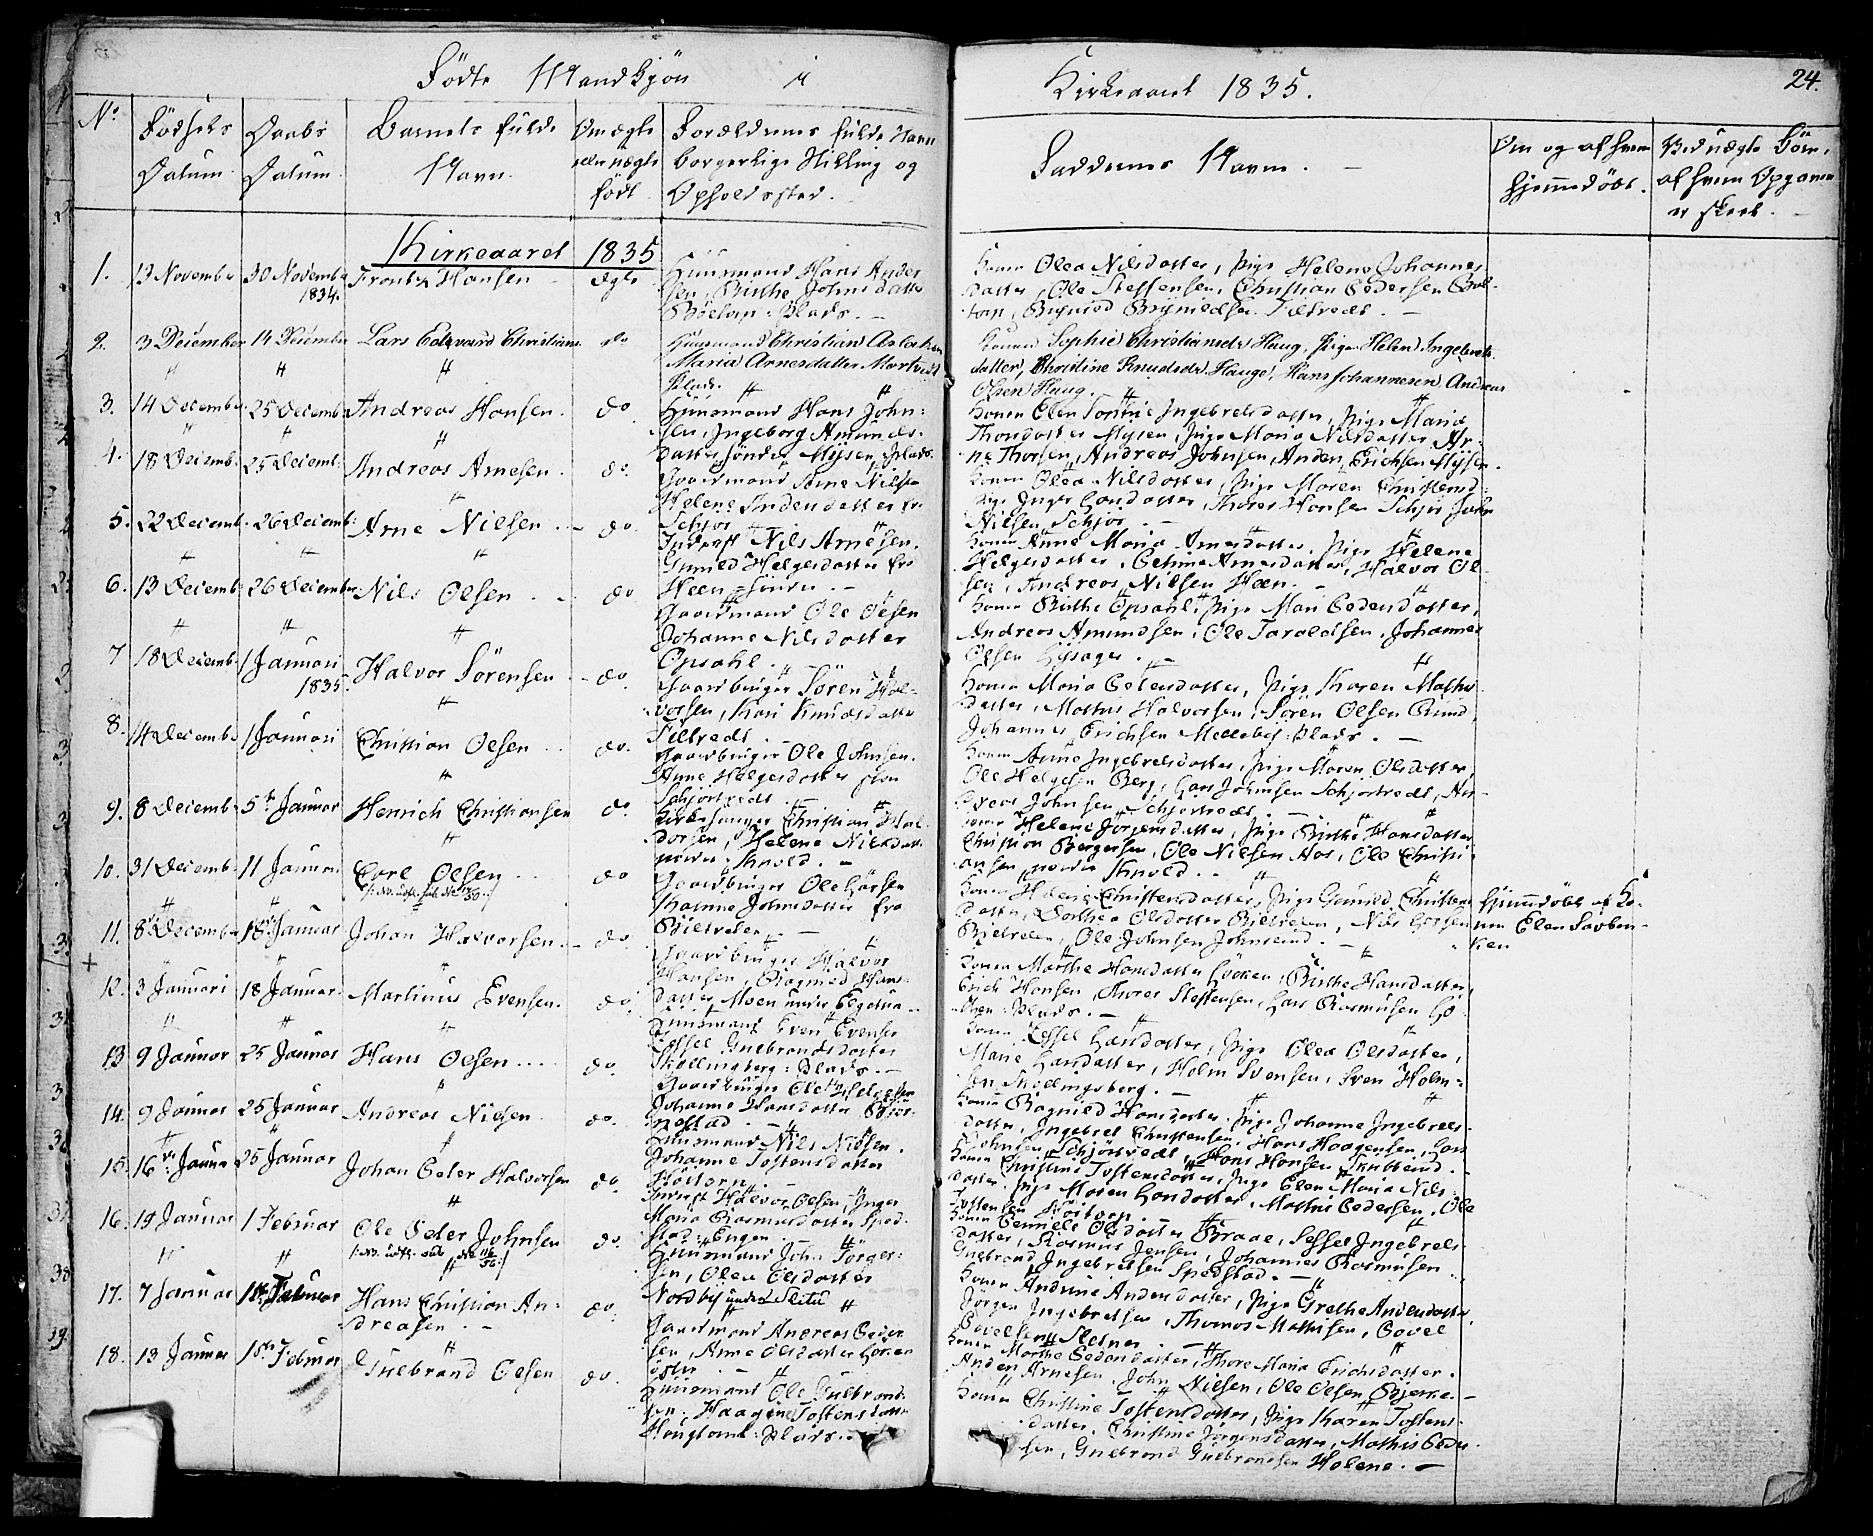 Födte Mandkjön i Kirkeaaret 1835.
24.
No
Födsels Datum
Daabs Datum
Barnets fulde Navn.
Om ægte eller uægte født
Forældrenes fulde Navn borgerlige Stilling og Opholdssted.
Faddernes Navne.
Om og af hvem hjemmedöbt.
Ved uægte Börn, af hvem Opgaven er skeet.
Kirkeaaret 1835
1. 13 Novembr 30 Novembr 1834. Hansen ægte
Huusmand Hans Anders
sen, Birthe Johnsdatter
Plads.
Konen Olea Nilsdatter, Pige Helene Johannes
datter, Ole Steffensen, Christian Pedersen
2. 3 December 14 December Lars Edvard Christians. do
Huusmand Christian Aslaksen
Maria Arnesdatter Mortvedt
Plads.
Konen Sophie Christiansdr Haug, Pige Helene Ingebrets
datter, Christine Knudsdr Hauge, Hans Johannesen Andreas
Olsen Haug.
3. 14 Decembr 25 Decembr Andreas Hansen. do
Huusmand Hans John-
sen, Ingeborg Amunds-
datter söndre Mysen Plads.
Konen Elen Sophie Ingebretsdatter, Pige Maria
Thorsdatter Mysen, Pige Maria Nilsdatter, Ar-
ne Thorsen, Andreas Johnsen, Anders Erichsen Mysen.
4. 18 Decemb. 25 Decemb: Andreas Arnesen. do.
Gaardmand Arne Nilsen
Helene Andersdatter fra
Schjør
Konen Olea Nilsdatter, Pige Maren Christensd.
Pige Inger Larsdatter, Thorer Hansen Schjör John
Nielsen Schjör.
5. 22 Decemb. 26 Decemb: Arne Nielsen do.
Inderst Nils Arnesen.
Gunild Helgesdatter fra
Heen
Konen Anne Maria Arnesdatter, Pige Helene
Helgesdatter, Arnesdatter, Halvor Ol-
sen, Andreas Nielsen Heen.
6. 13 Decemb: 26 December Nils Olsen do
Gaardmand Ole Olsen
Johanne Nilsdatter
Opsahl.
Konen Birthe Opsahl, Pige Mari Pedersdatter,
Andreas Amundsen, Ole Taraldsen, Johannes
Olsen
7 18 Decemb. 1 Januari 1835. Halvor Sörensen do.
Gaardbruger Sören Hal-
vorsen, Kari Knudsdatter
Konen Maria Pedersdatter, Pige Karen Mathis
datter, Mathis Halvorsen, Sören Olsen Rud,
Johannes Erichsen Melleby Plads.
8. 14 Decemb. 1 Januari Christian Olsen do.
Gaardbruger Ole Johnsen.
Anne Helgesdatter fra
Schjörtvedt.
Konen Anne Ingebretsdatter, Pige Maren Olsdatter,
Ole Helgesen Berg, Lars Johnsen Schjortvedt, An-
dreas Johnsen Schjortvedt.
9. 8 Decembr 5te Januar Henrich Christiansen do.
Kirkesanger Christian Hal-
vorsen, Helene Nilsdatter
nordre
Konen Helene Jörgensdatter, Pige Birthe Hansdatter
Christian Børgersen, Ole Nilsen Aas, Ole Christi-
ansen, nordre
10. 31 Decemb. 11 Januar Carl Olsen do
Gaardbruger Ole Larsen
Johnsdatter fra
Konen Helene Christensdatter, Pige Gunild Christens
datter, Dorthea Olsdatter Ole Johnsen Johnsrud.
Hjemmedöbt af Ko-
nen Elen
11. 8de Decembr 18de Januar Johan Halvorsen. do
Gaardbruger Halvor
Hansen, Ragnild Hans-
datter Moen under Eegetun
Konen Marthe Hansdatter, Birthe Hansdatter,
Erich Hansen, Thorer Steffensen, Lars Rasmusen
Plads.
12. 3 Januari 18 Januar. Martinus Evensen. do.
Huusmand Even Evensen
Gulbrandsdatter
Skollingberg Plads.
Konen Larsdatter, Pige Olea Olsdatter,
Marie Larsdatter, Holm Svensen, Sven Holm-
sen Skollingsberg.
13 9 Januar 25 Januar Hans Olsen do.
Gaardbruger Ole
Johanne Hansdatter
Konen Ragnild Hansdatter, Pige Johanne Ingebrets-
datter, Ingebret Christensen, Hans Haagensen, Lars
Johnsen Schjörtvedt, Hans Hansen
14. 9 Januar 25 Januar Andreas Nilsen do.
Huusmand Nils Nilsen.
Johanne Tostensdatter
Höitorp
Konen Christine Tostensdatter, Pige Elen Maria Nils-
datter, Pige Maren Larsdatter, Mathis Pedersen, Ole
Tostensen Höitorp.
15. 16de Januar 25 Januar Johan Peder Halvorsen do.
Inderst Halvor Olsen, Inger
Maria Rasmusdatter Sped-
stad: Engen
Konen Pernille Olsdatter Braae, Ingebrets-
datter, Rasmus Jensen, Johannes Rasmusen
Gulbrand Ingebretsen Spedstad.
16. 19 Januar 1 Februar Ole Peder Johnsen do.
Huusmand John Jörgen-
sen, Olea Olsdatter
Nordby under Slitu
Konen Andrine Andersdatter, Pige Grethe Andersdatter,
Jörgen Ingebretsen, Thomas Mathisen, Povel
Povelsen Sletner
17. 7 Januar 15 Februar Hans Christian An-
dreasen. do.
Gaardmand Andreas Peder
sen, Anne Olsdatter
östre
Konen Marthe Pedersdatter, Thore Maria Erichsdatter,
Anders Arnesen, John Nielsen, Ole Olsen Bjerke.
18. 13 Januar 15de Februar Gulbrand Olsen do.
Huusmand Ole Gulbrand-
sen, Haagine Tostensdatter
Plads.
Konen Christine Tostensdatter, Pige Karen Tostens-
datter, Christine Jörgensdatter, Mathis Peder-
sen, Gulbrand Gulbrandsen Holene.